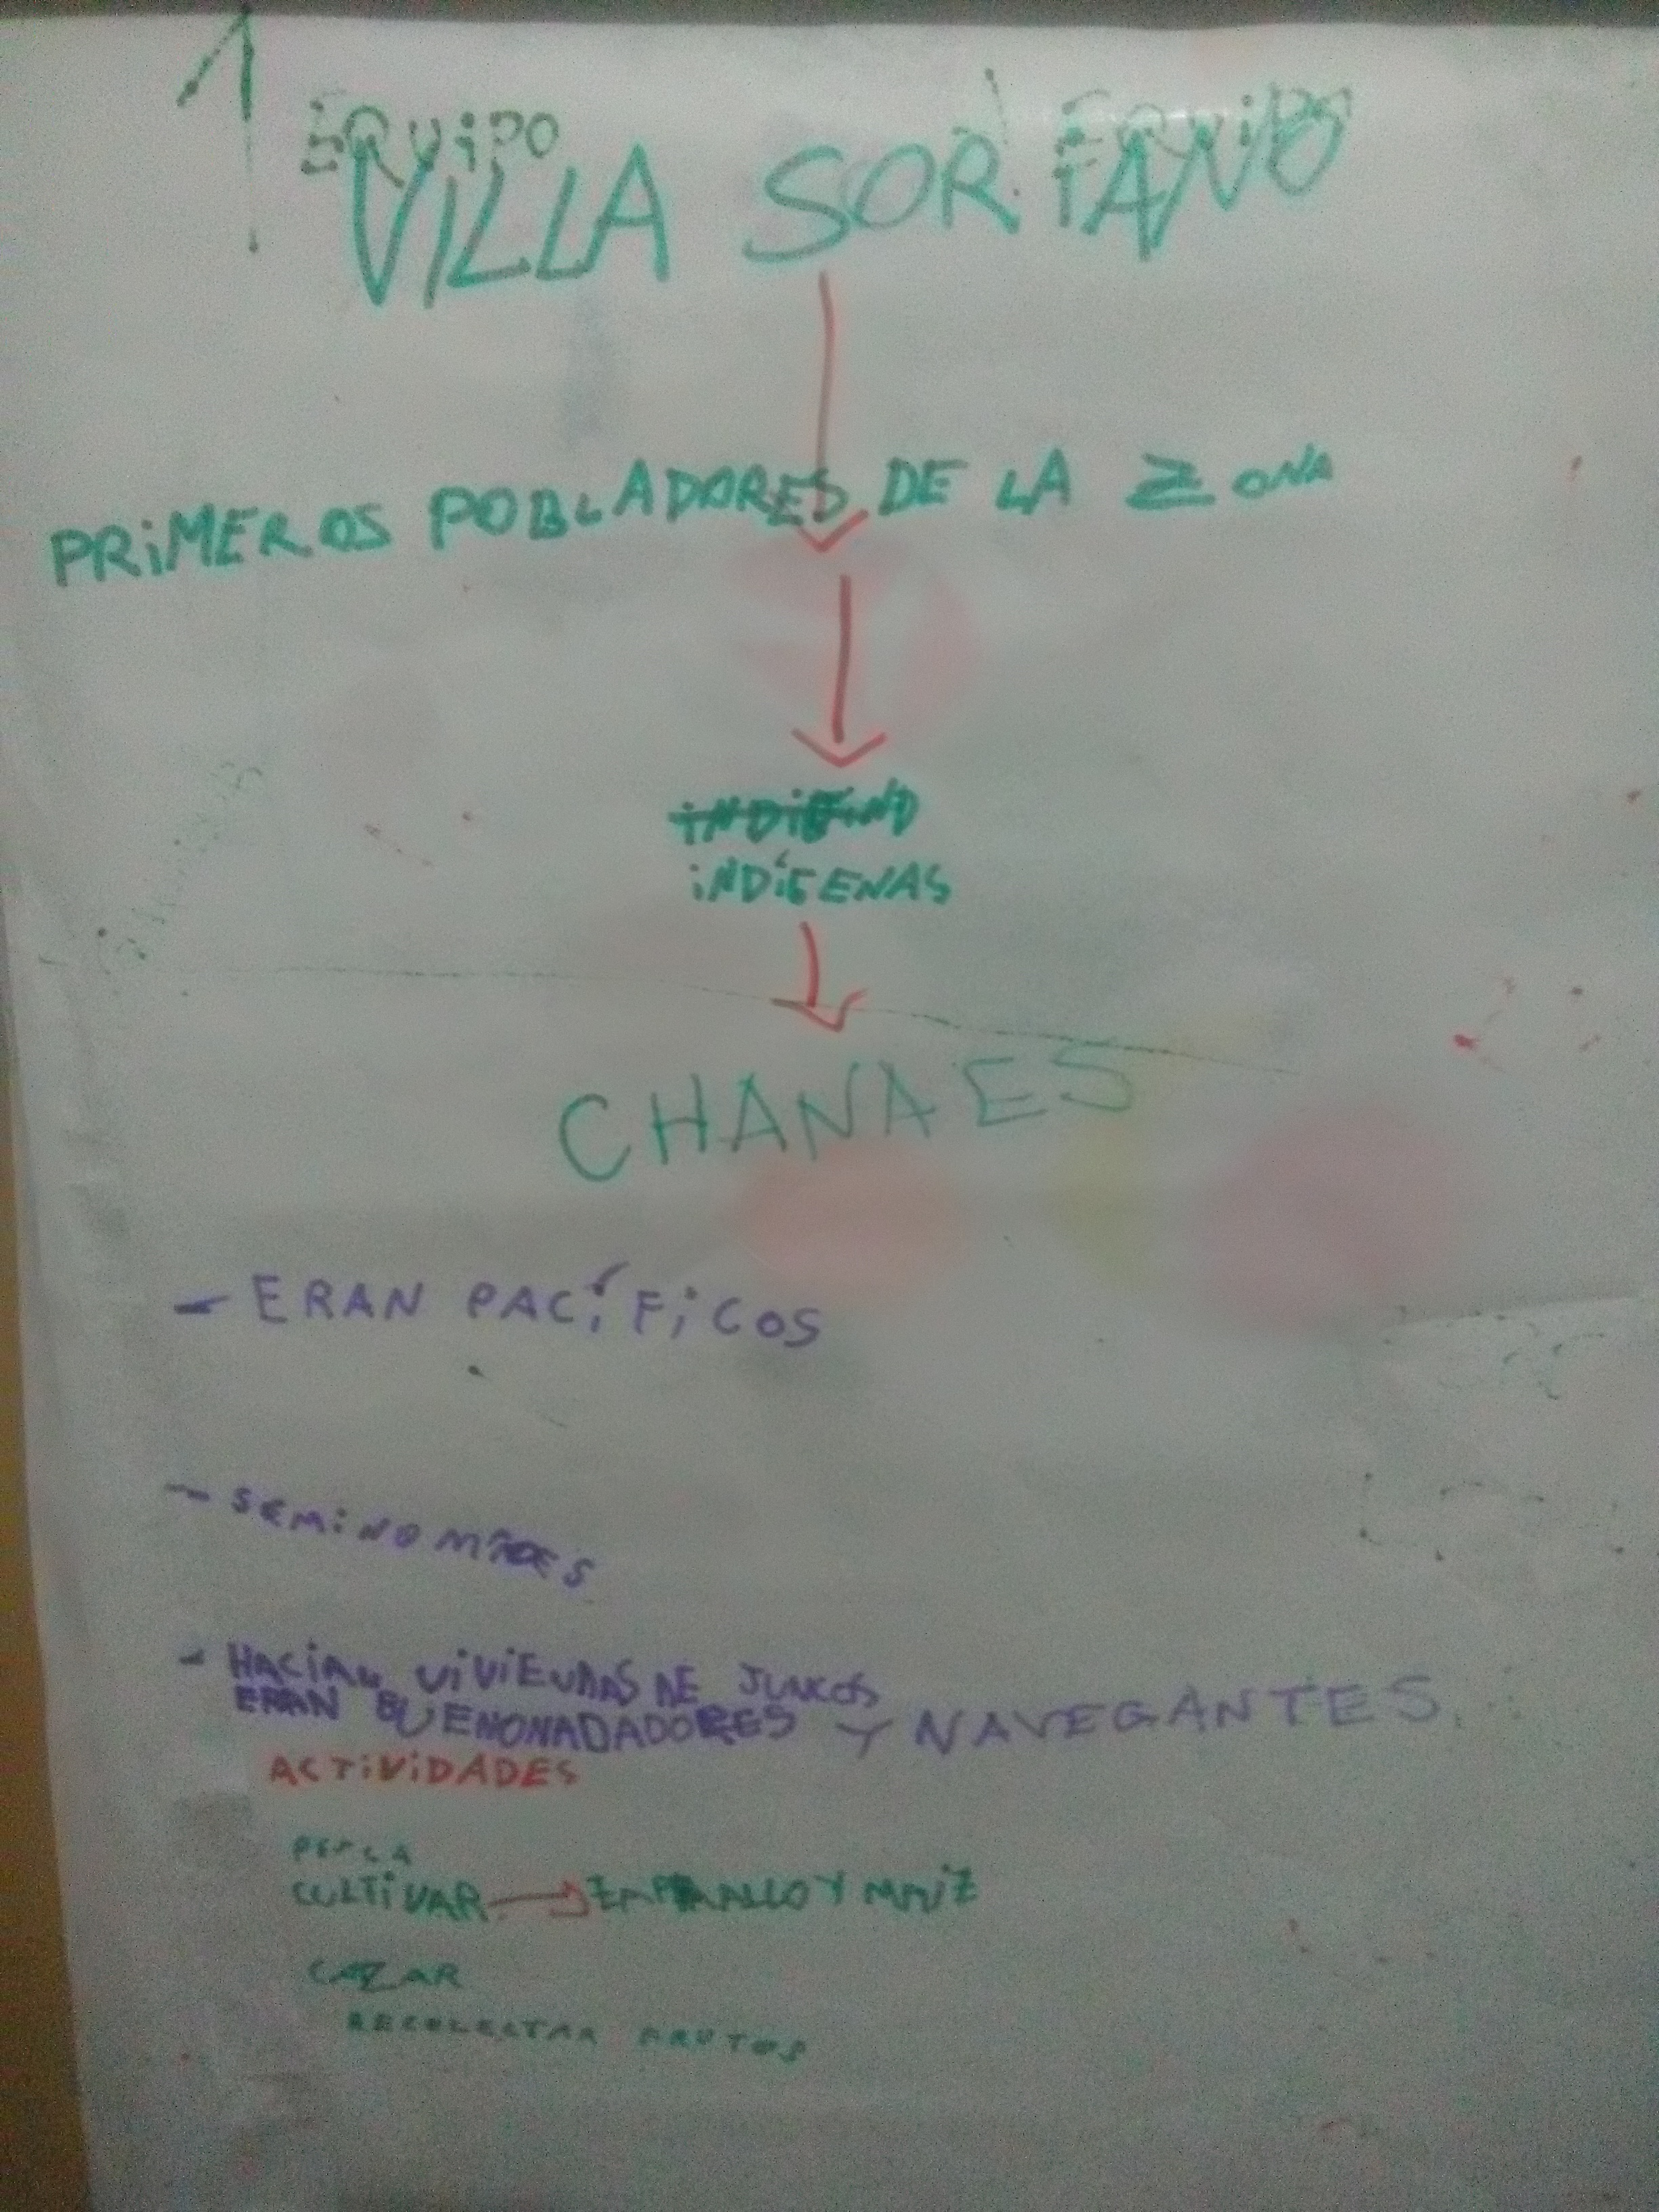 1
EQUIPO EQUIPO
VILLA SORIANO
PRIMEROS POBLADORES DE LA ZONA
INDÍGENAS
CHANAES
- ERAN PACÍFICOS
- SEMINOMADES
- HACIAN VIVIENDAS DE JUNCOS
ERAN BUENONADADORES Y NAVEGANTES.
ACTIVIDADES
PESCA
CULTIVAR → ZAPALLO Y MAIZ
CAZAR
RECOLECTAR FRUTOS